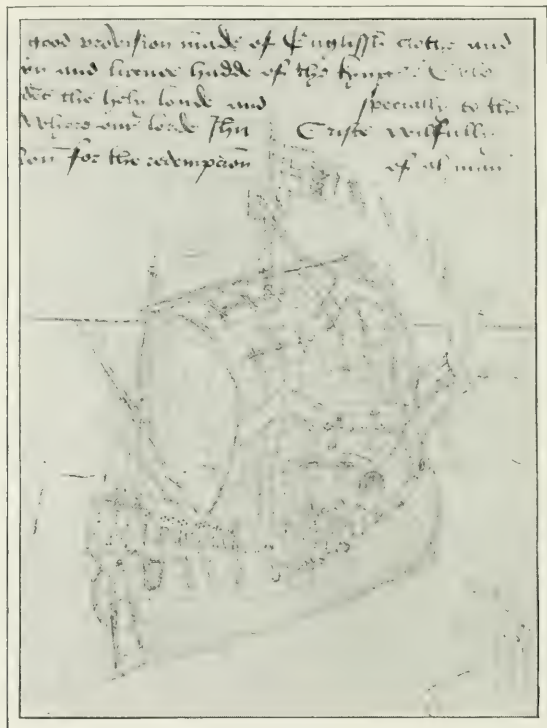 good provision made of Englissh clothe and
and licence hadde of the kynges
the holy londe and specially to the
Where our lorde Jhu Criste wilfully
for the redempcion of al man